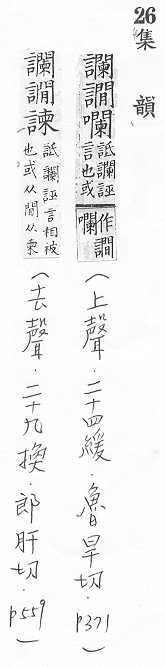 26
集韻
讕譋囒 詆讕誣言也或作譋囒
(上聲．二十四緩．魯旱切．P371)
讕譋諫 詆讕誣言相被也或从閒从柬
(去聲．二十九換．郎肝切．P559)